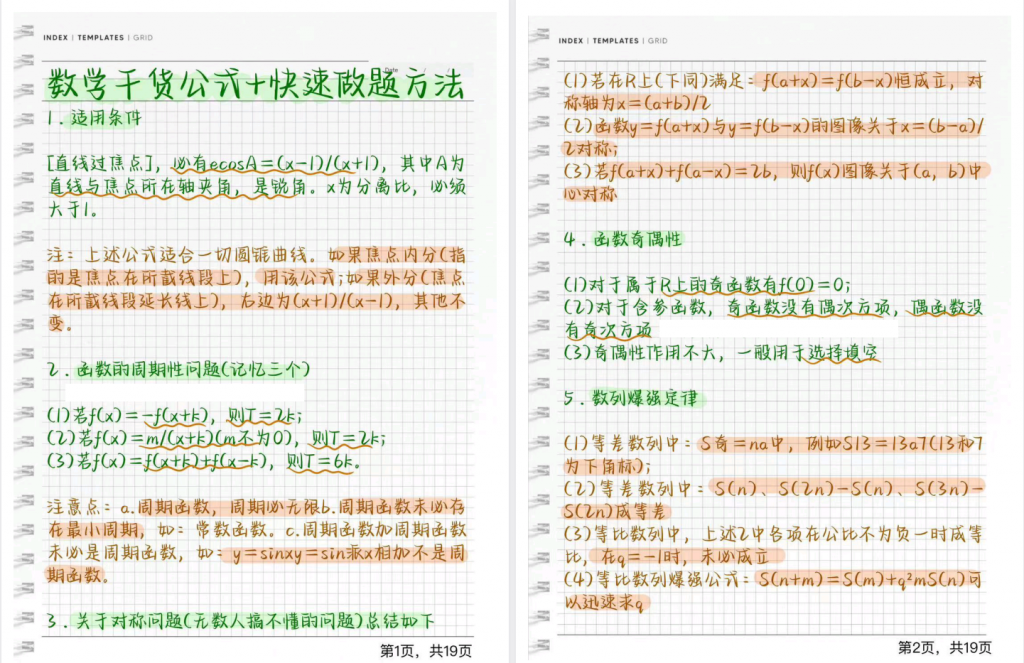 INDEX | TEMPLATES | GRID
Date
数学干货公式+快速做题方法
1.适用条件
[直线过焦点],必有ecosA=(x-1)/(x+1),其中A为
直线与焦点所在轴夹角,是锐角。x为分离比,必须
大于1。
注:上述公式适合一切圆锥曲线。如果焦点内分(指
的是焦点在所截线段上),用该公式;如果外分(焦点
在所截线段延长线上),右边为(x+1)/(x-1),其他不
变。
2.函数的周期性问题(记忆三个)
(1)若f(x)=-f(x+k),则T=2k;
(2)若f(x)=m/(x+k)(m不为0),则T=2k;
(3)若f(x)=f(x+k)+f(x-k),则T=6k。
注意点:a.周期函数,周期必无限b.周期函数未必存
在最小周期,如:常数函数。c.周期函数加周期函数
未必是周期函数,如:y=sinxy=sin派x相加不是周
期函数。
3.关于对称问题(无数人搞不懂的问题)总结如下
第1页,共19页
INDEX | TEMPLATES | GRID
(1)若在R上(下同)满足:f(a+x)=f(b-x)恒成立,对
称轴为x=(a+b)/2
(2)函数y=f(a+x)与y=f(b-x)的图像关于x=(b-a)/
2对称;
(3)若f(a+x)+f(a-x)=2b,则f(x)图像关于(a,b)中
心对称
4.函数奇偶性
(1)对于属于R上的奇函数有f(0)=0;
(2)对于含参函数,奇函数没有偶次方项,偶函数没
有奇次方项
(3)奇偶性作用不大,一般用于选择填空
5.数列爆强定律
(1)等差数列中:S奇=na中,例如S13=13a7(13和7
为下角标);
(2)等差数列中:S(n)、S(2n)-S(n)、S(3n)-
S(2n)成等差
(3)等比数列中,上述2中各项在公比不为负一时成等
比,在q=-1时,未必成立
(4)等比数列爆强公式:S(n+m)=S(m)+q²mS(n)可
以迅速求q
第2页,共19页